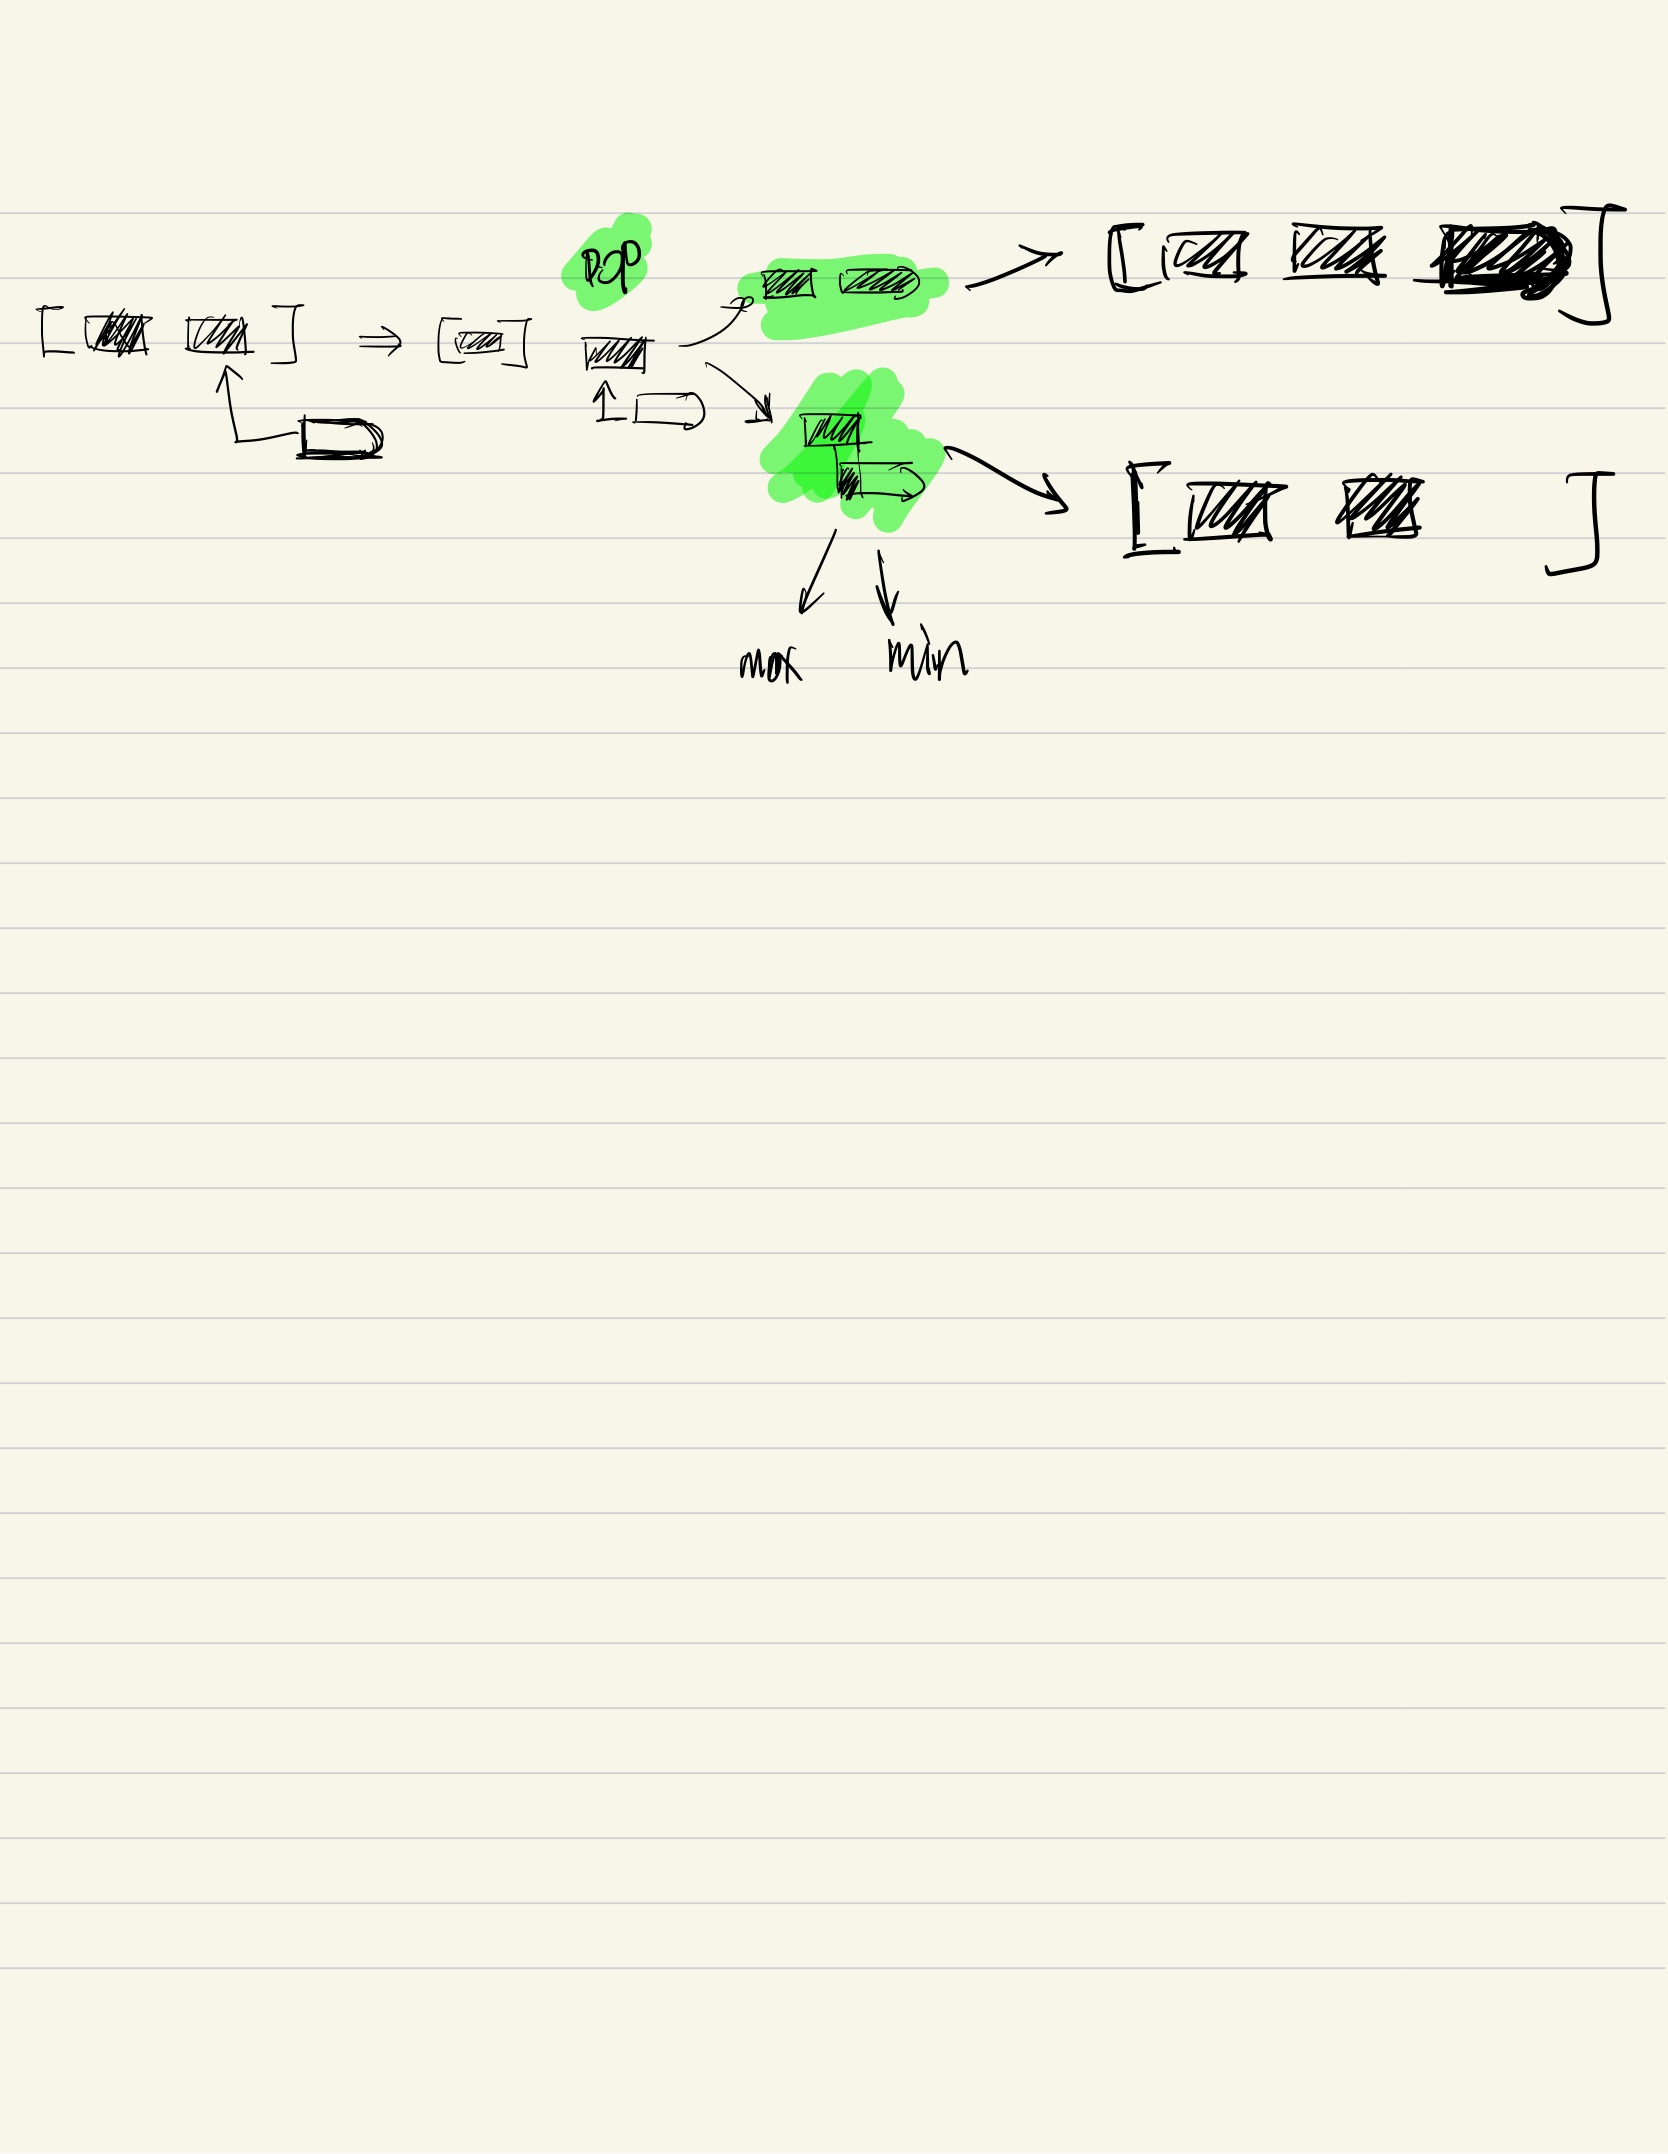 pop
max min